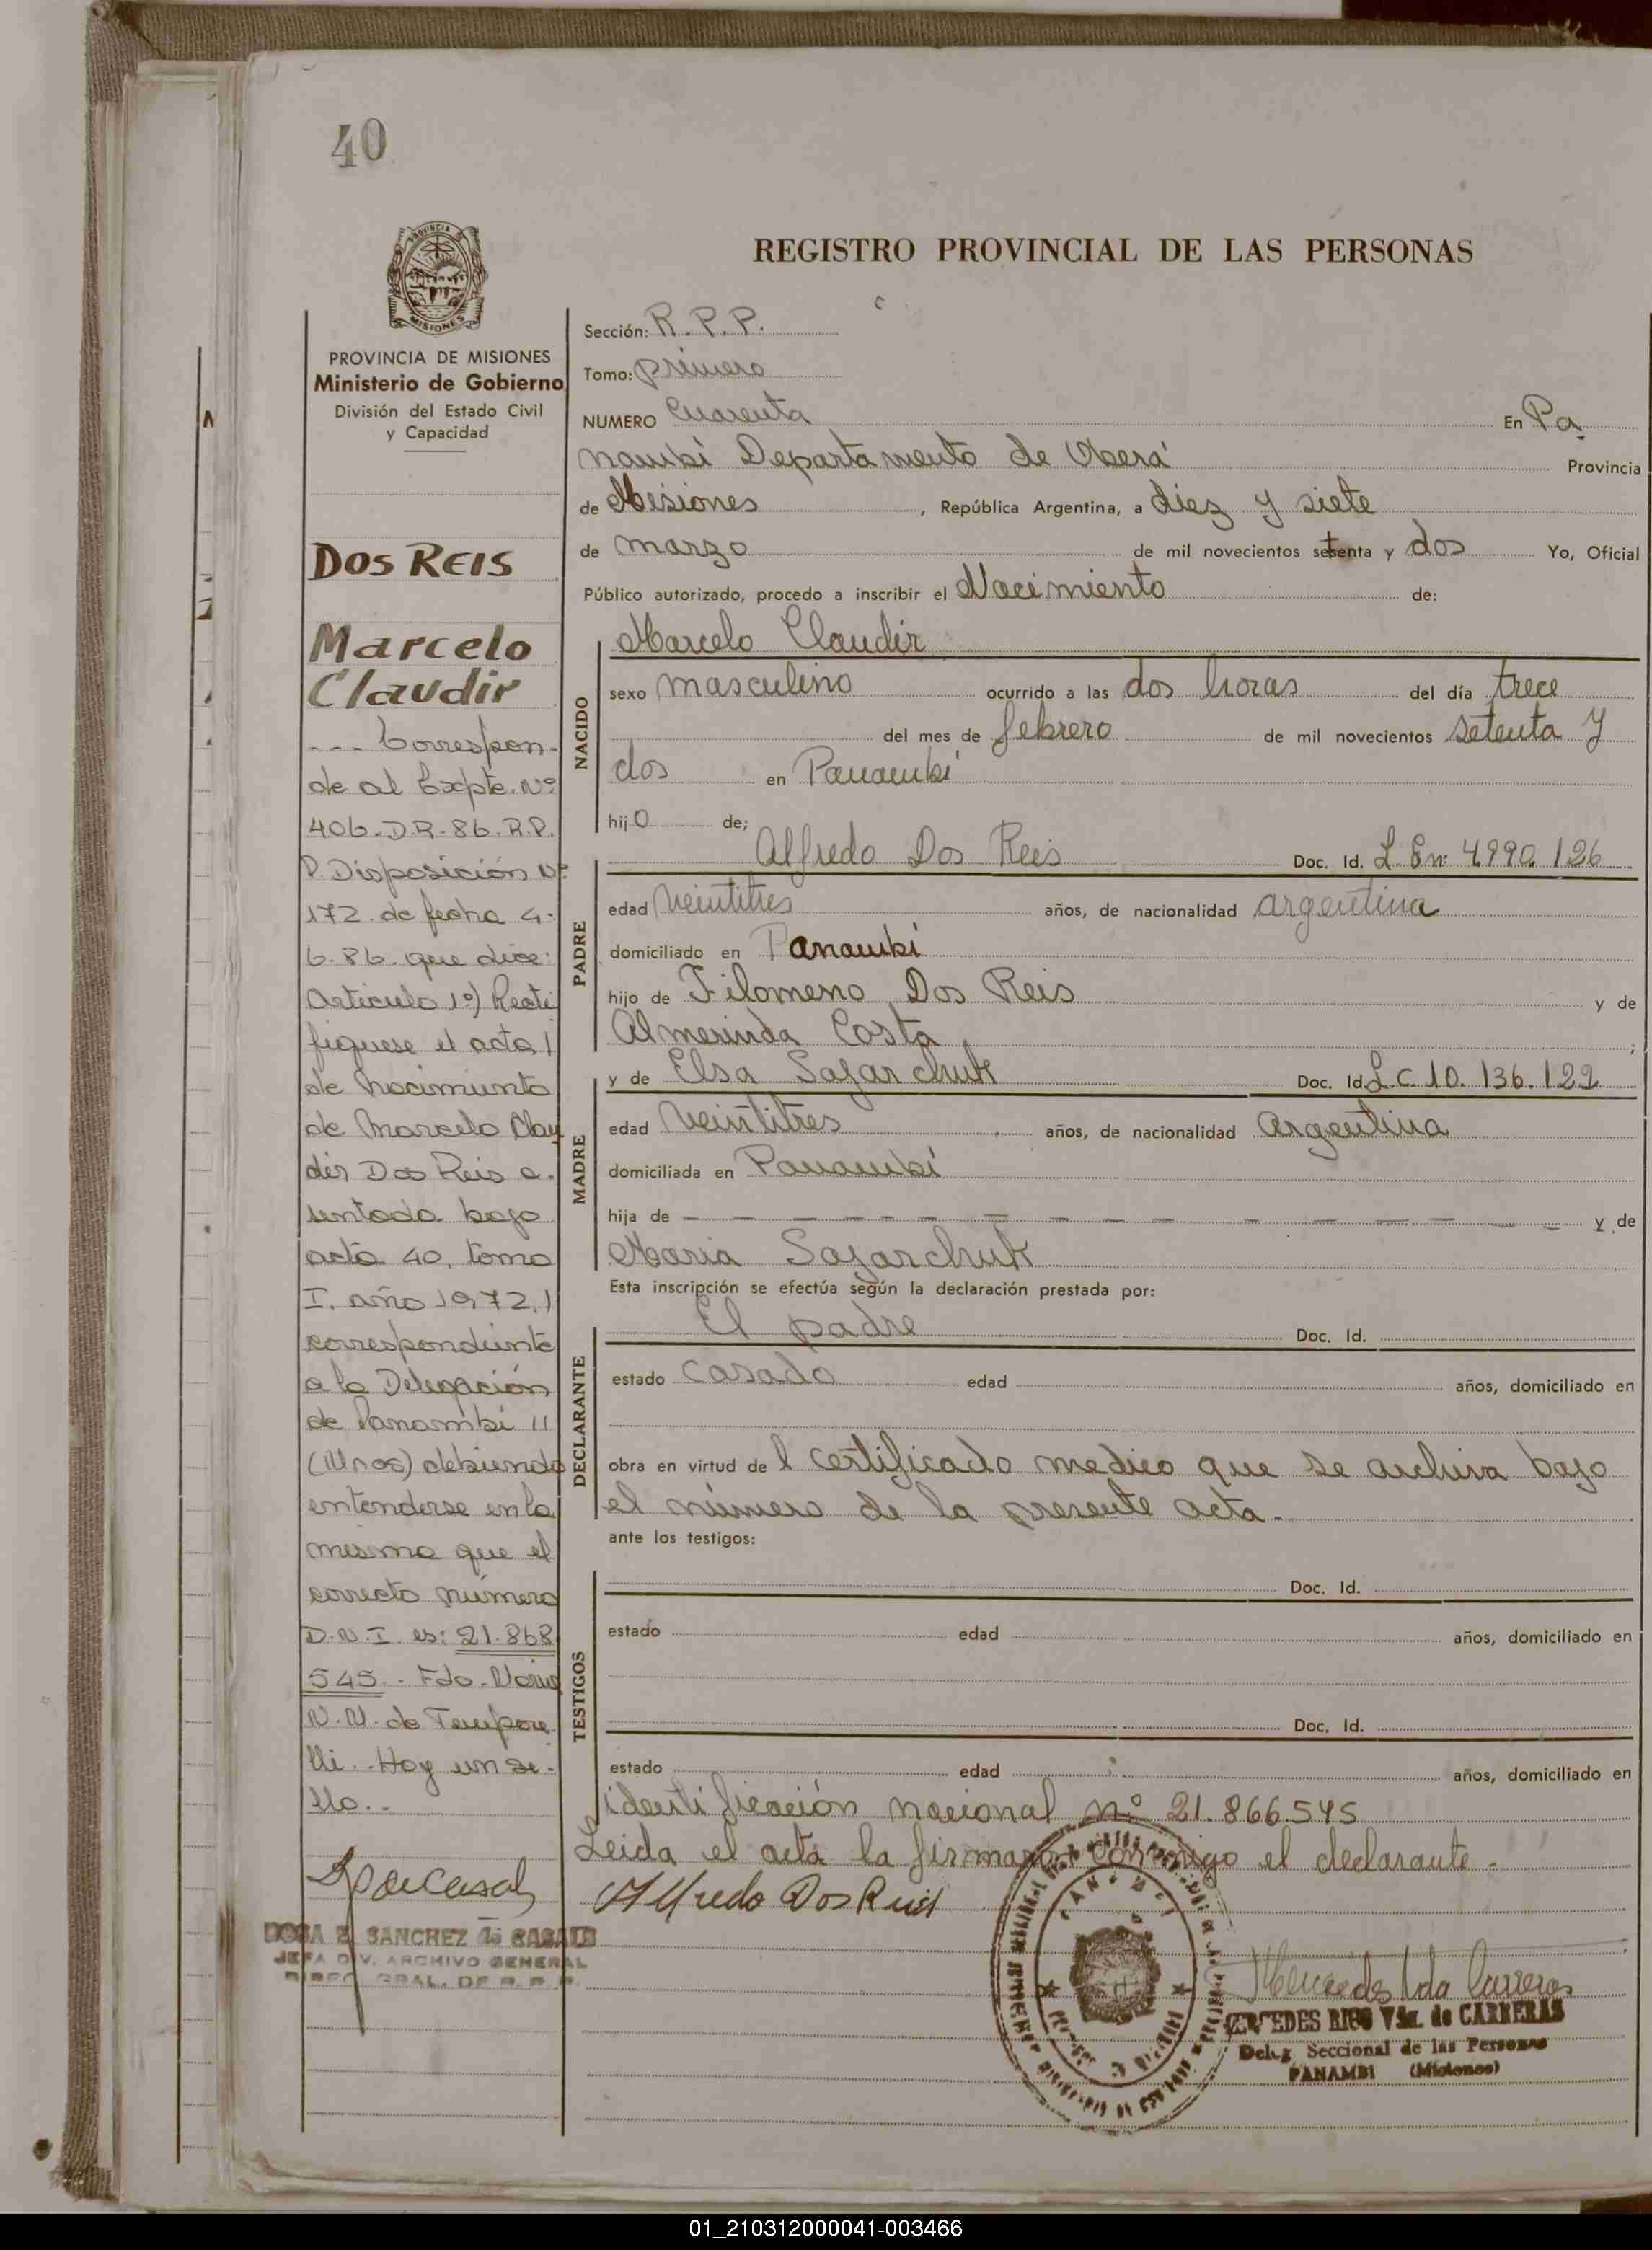 40
PROVINCIA DE
MISIONES
PROVINCIA DE MISIONES
Ministerio de Gobierno
División del Estado Civil
y Capacidad
DOS REIS
Marcelo
Claudir
--- Correspon-
de al Expte. Nº
406-D.R-86-R.P.
P. Disposición Nº
172 de fecha 4-
6-86- que dice:
Artículo 1º) Recti
fíquese el acta
de nacimiento
de Marcelo Clau
dir Dos Reis a-
sentada bajo
acta 40, tomo
I, año 1972,
correspondiente
a la Delegación
de Panambí
(Mnes) debiendo
entenderse en la
misma que el
correcto número
D.N.I. es: 21.868
545.- Fdo. Norma
N.N. de Tempore
lli.- Hay un se-
llo.-
SANCHEZ de CASALS
JEFA DIV. ARCHIVO GENERAL
DIREC. GRAL. DE R. P. P.
REGISTRO PROVINCIAL DE LAS PERSONAS
Sección: R.P.P.
Tomo: primero
NUMERO Cuarenta En Pa
nambí Departamento de Oberá Provincia
de Misiones, República Argentina, a diez y siete
de marzo de mil novecientos setenta y dos Yo, Oficial
Público autorizado, procedo a inscribir el Nacimiento de:
NACIDO
Marcelo Claudir
sexo masculino ocurrido a las dos horas del día trece
del mes de febrero de mil novecientos setenta y
dos en Panambí
hijo de;
PADRE
Alfredo Dos Reis Doc. Id. L. En: 4.990.126
edad veintitres años, de nacionalidad argentina
domiciliado en Panambí
hijo de Filomeno Dos Reis y de
Almerinda Costa ;
MADRE
y de Elsa Sajarchuk Doc. Id. L.C 10.136.122
edad veintitres años, de nacionalidad argentina
domiciliada en Panambí
hija de — — — — — — — — — — — — y de
Maria Sajarchuk
Esta inscripción se efectúa según la declaración prestada por:
DECLARANTE
El padre Doc. Id.
estado casado edad años, domiciliado en
obra en virtud de l certificado medico que se archiva bajo
el número de la presente acta.-
ante los testigos:
TESTIGOS
Doc. Id.
estado edad años, domiciliado en
Doc. Id.
estado edad años, domiciliado en
identificación nacional nº 21.866.545
Leida el acta la firman conmigo el declarante -
Alfredo Dos Reis
MERCEDES RIGO Vda. de CARRERAS
Deleg. Seccional de las Personas
PANAMBI (Misiones)
01_210312000041-003466